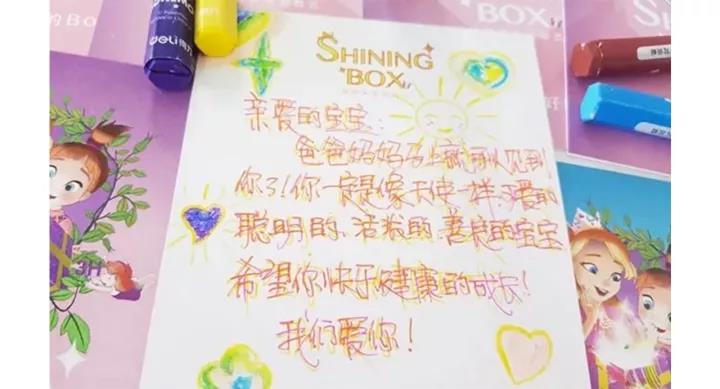 SHINING
BOX
亲爱的宝宝:
爸爸妈妈马上就可以见到
你了!你一定是像天使一样,可爱的
聪明的、活泼的、善良的宝宝
希望你快乐健康的成长!
我们爱你!
deli得力
BOX